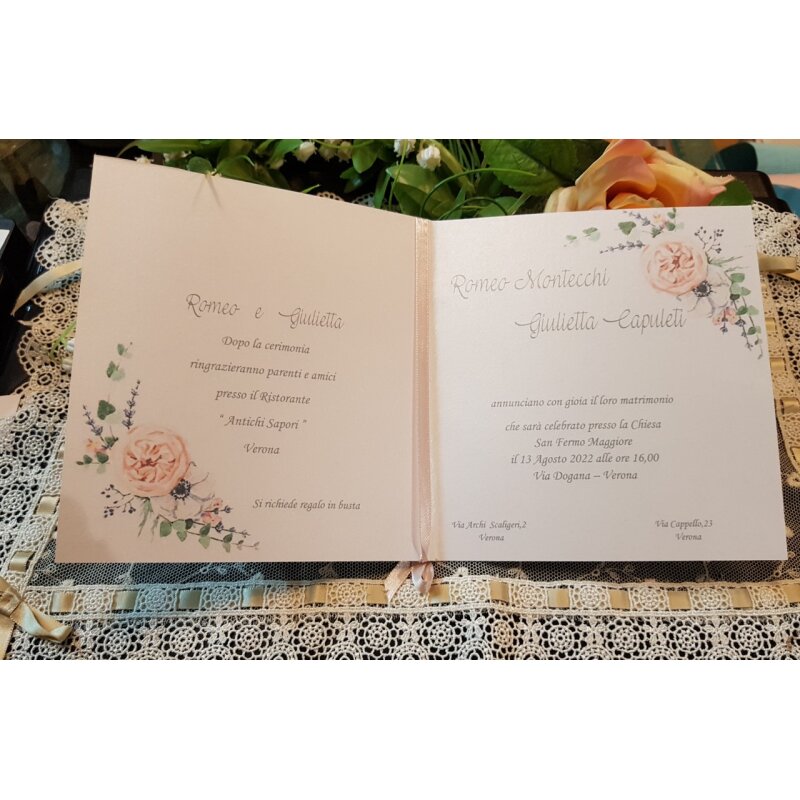 Romeo e Giulietta
Dopo la cerimonia
ringrazieranno parenti e amici
presso il Ristorante
“ Antichi Sapori ”
Verona
Si richiede regalo in busta
Romeo Montecchi
Giulietta Capuleti
annunciano con gioia il loro matrimonio
che sarà celebrato presso la Chiesa
San Fermo Maggiore
il 13 Agosto 2022 alle ore 16,00
Via Dogana – Verona
Via Archi Scaligeri,2
Verona
Via Cappello,23
Verona